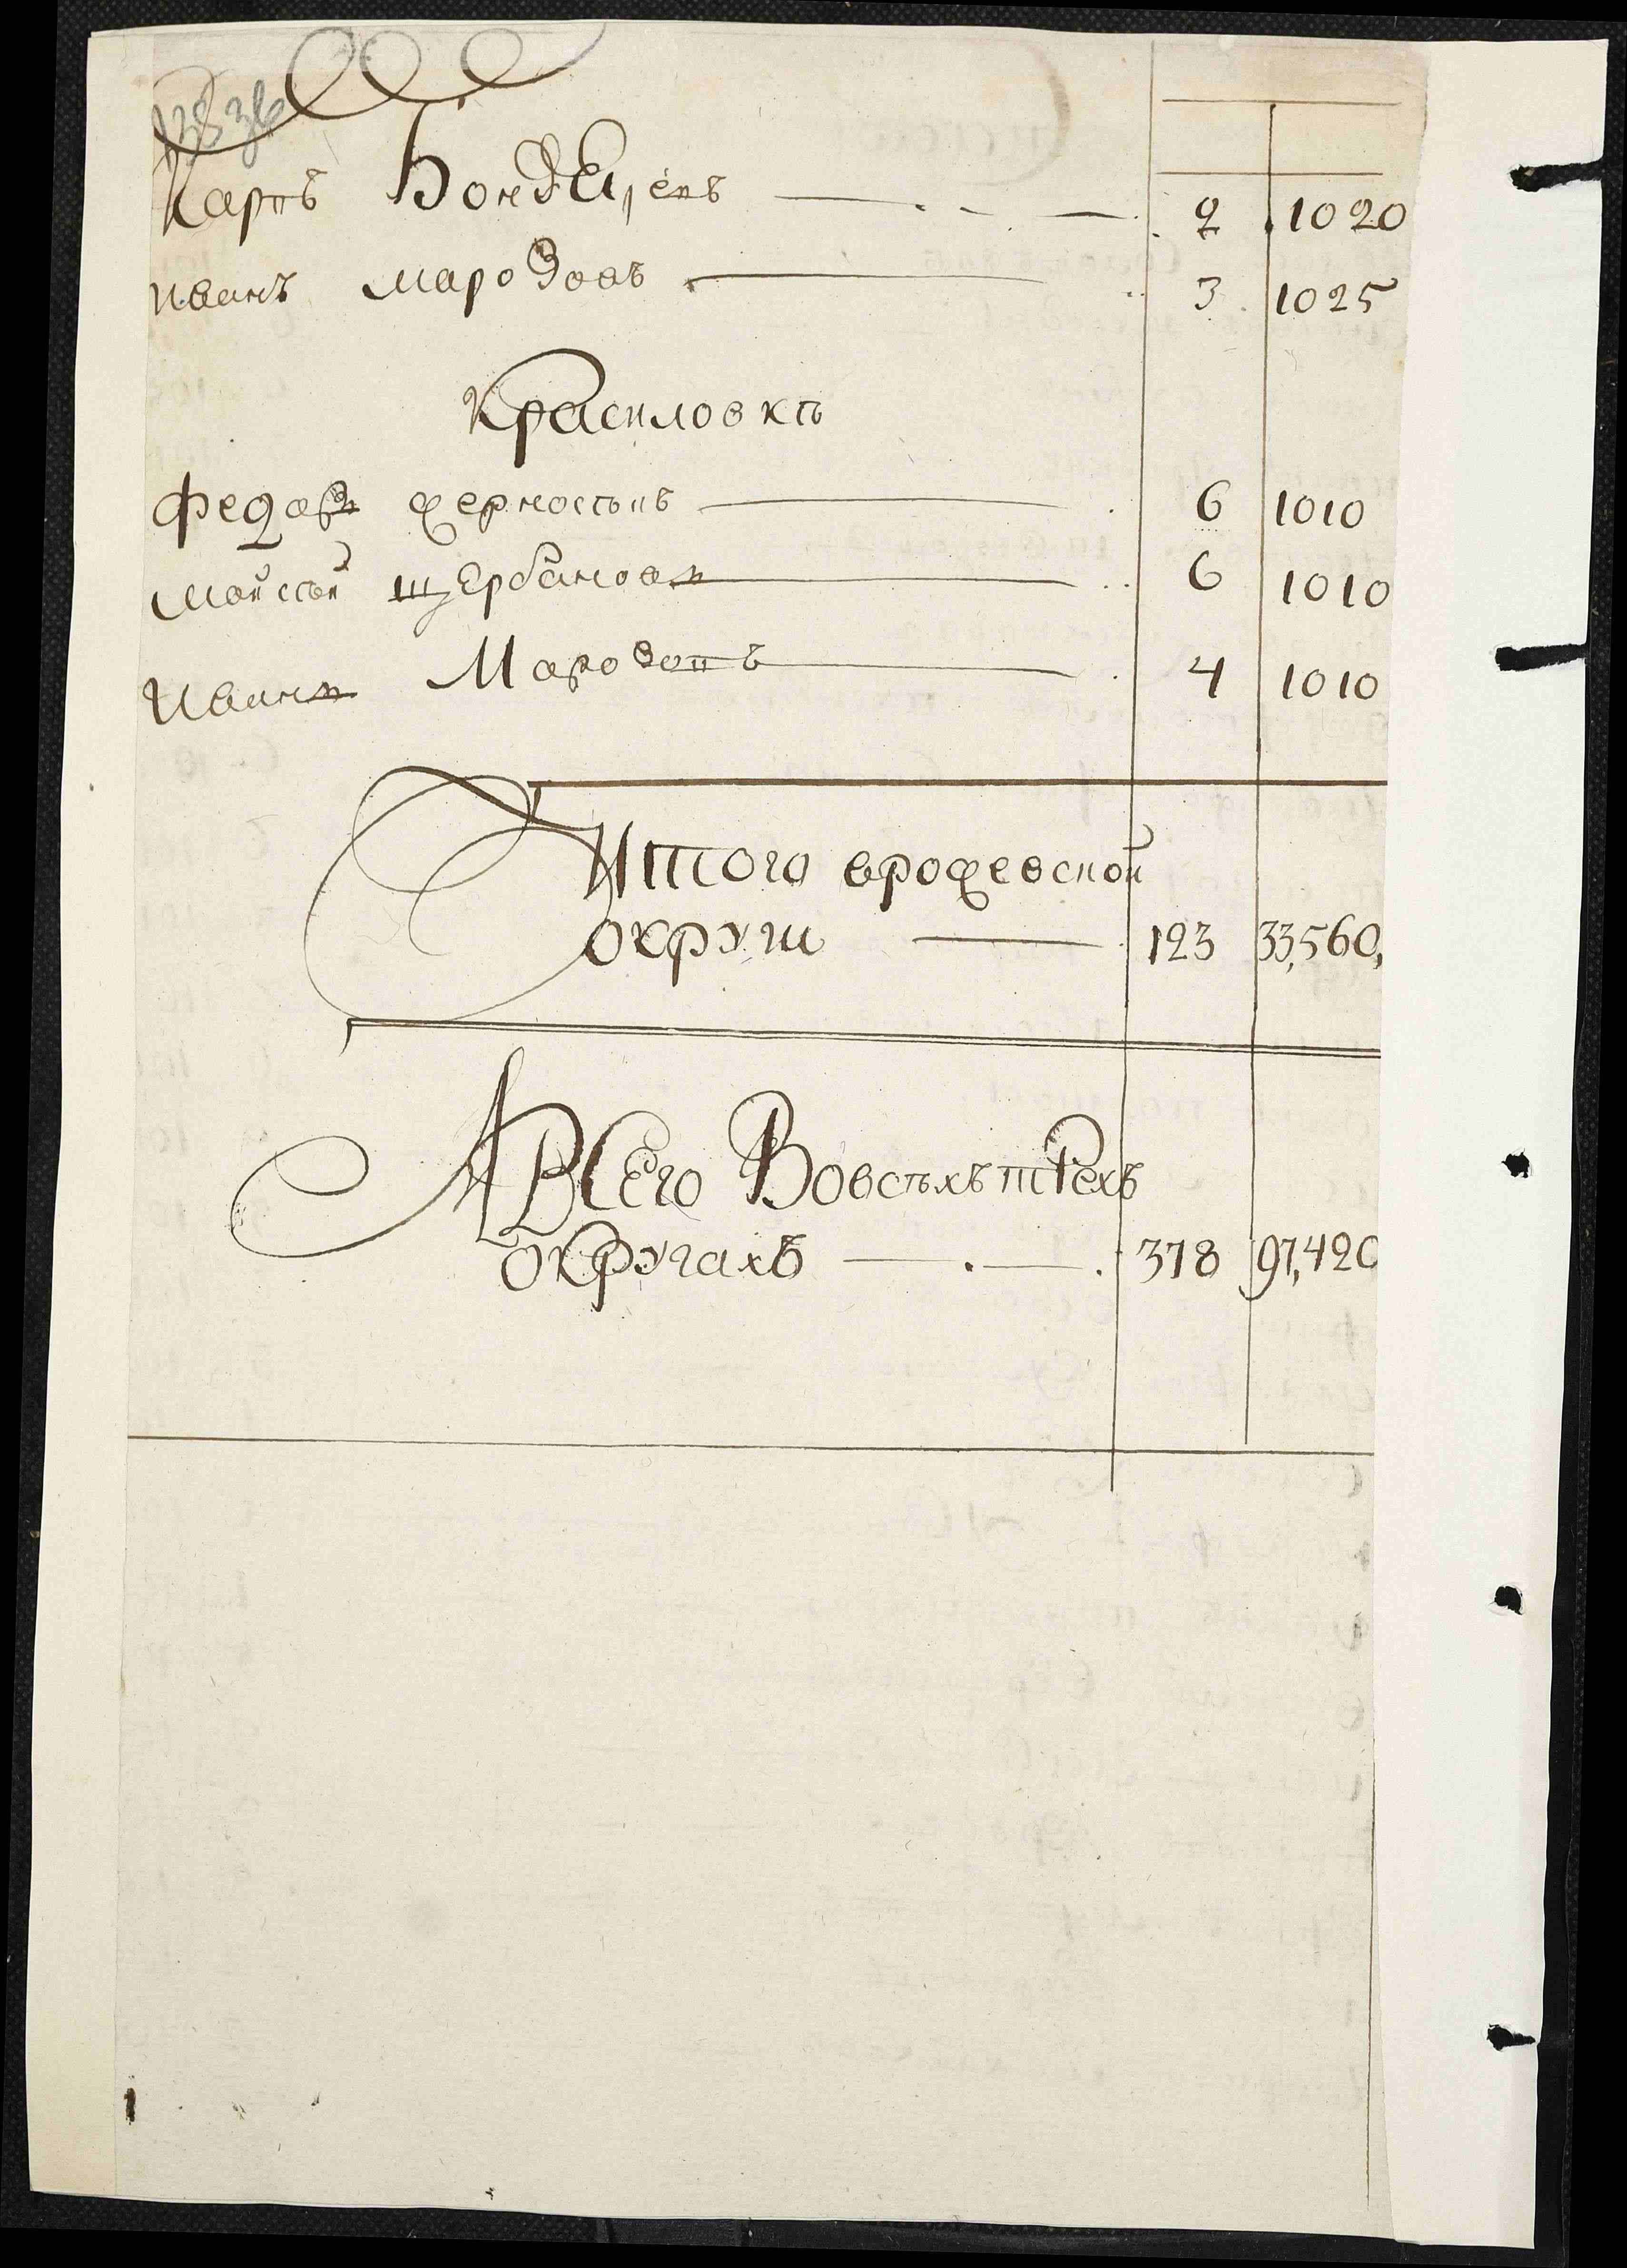 Карпъ Бондаренъ 2 1020
Иванъ марозовъ 3 1025
Красиловкѣ
Федоръ 6 1010
Мойсей щербановъ 6 1010
Иванъ Марозовъ 4 1010
Итого врофевской
округи 123 33,560,
А Всего Вовсѣхъ трехъ
округахъ 378 97,420